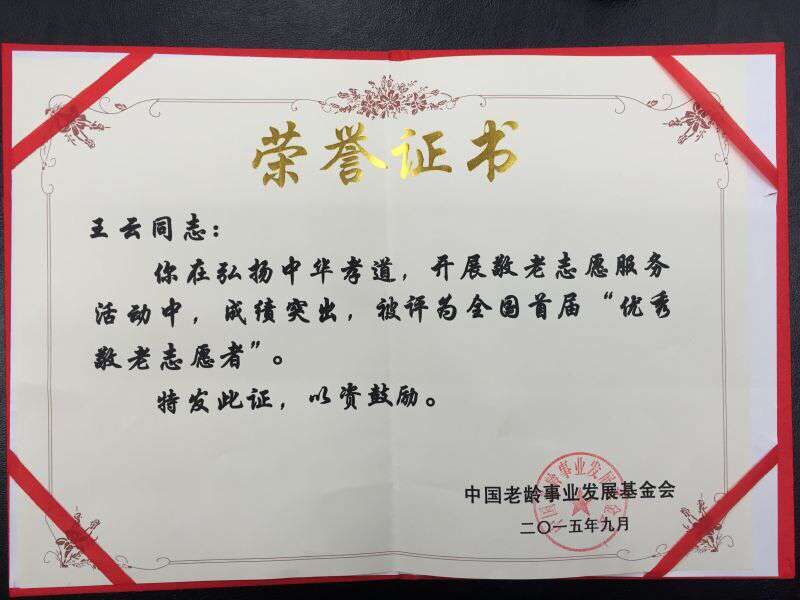 荣誉证书
王云同志：
你在弘扬中华孝道，开展敬老志愿服务
活动中，成绩突出，被评为全国首届“优秀
敬老志愿者”。
特发此证，以资鼓励。
中国老龄事业发展基金会
二〇一五年九月